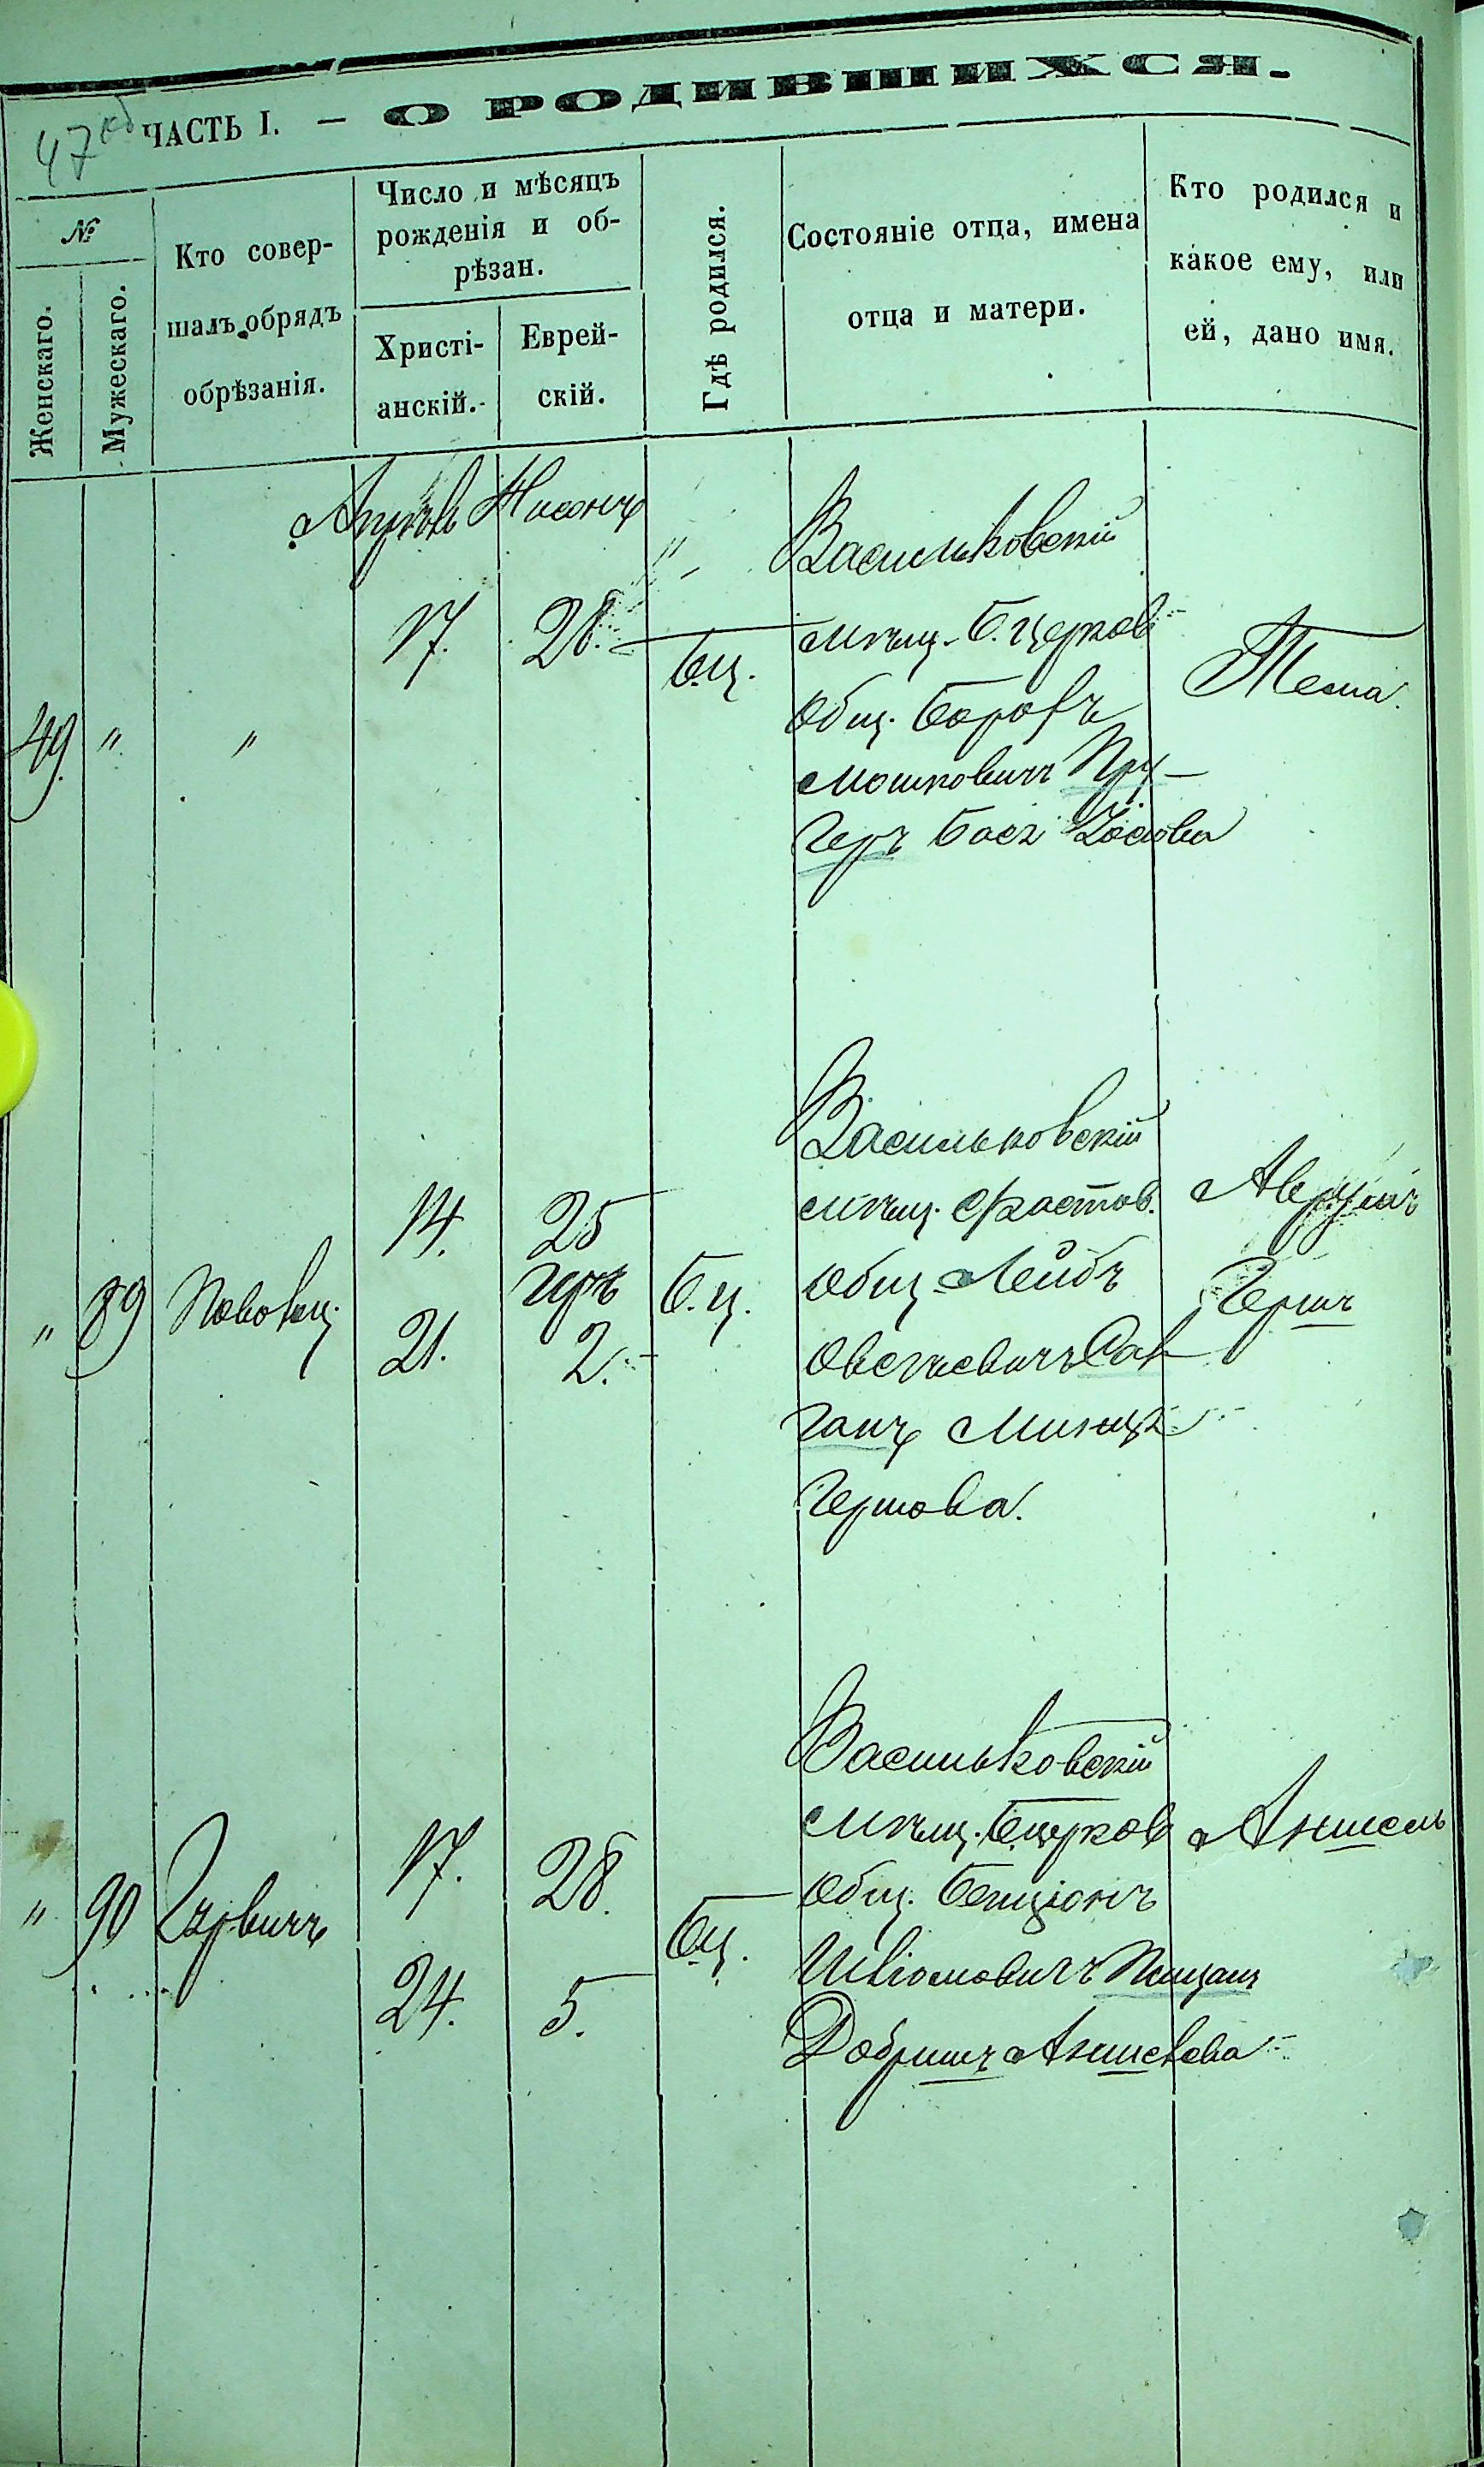 47 об
ЧАСТЬ I. — О РОДИВШИХСЯ.
№
Женскаго.
Мужескаго.
Кто совер-
шалъ обрядъ
обрѣзанія.
Число и мѣсяцъ
рожденія и об-
рѣзан.
Христі-
анскій.
Еврей-
скій.
Гдѣ родился.
Состояніе отца, имена
отца и матери.
Кто родился и
какое ему, или
ей, дано имя.
Апрѣль Нисонъ
49 " " 17. 28. Б.ц.
Васильковскій
мѣщ. Б. церков
Общ. Борохъ
Мошковичъ Пру-
геръ Бася Іосіова
Тема.
" 89 14. 25 Б.ц.
21. 2.
Васильковскій
мѣщ. Фастов.
Общ. Лейбъ
Овсѣевичъ Сат-
ганъ
Гершова.
Аврумъ
Гершъ
" 90 Гурвичъ 17. 28. Бц.
24. 5.
Васильковскій
мѣщ. Бцерков
Общ. Бенціонъ
Шліомовичъ
Добришъ Аншелева
Аншель